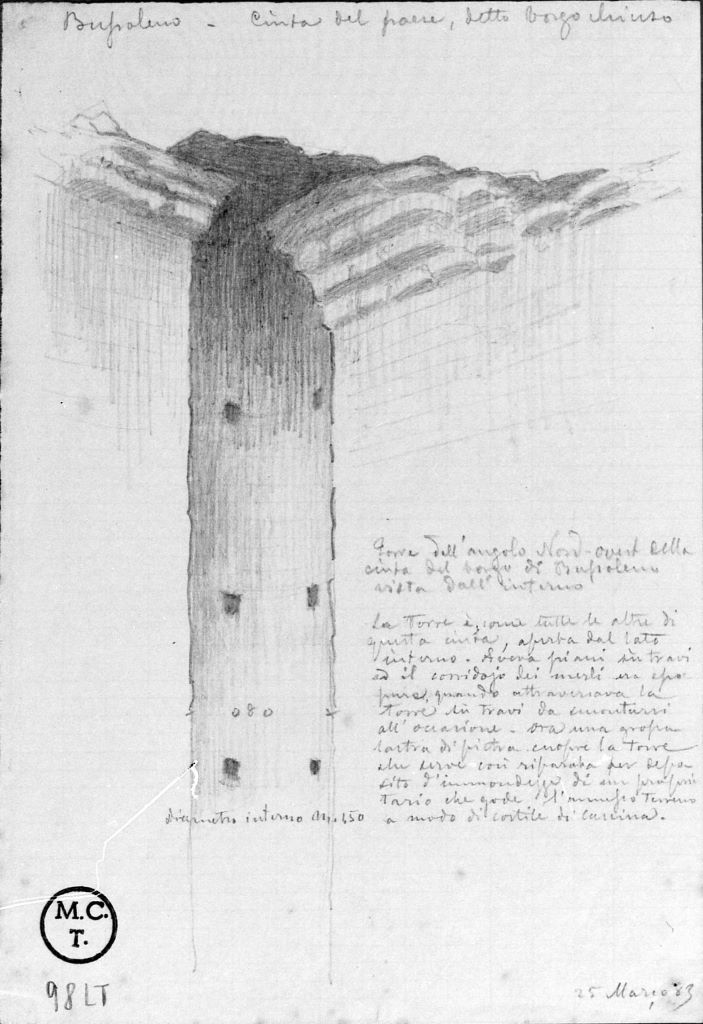 Bussoleno - Cinta del paese, detto borgo chiuso
Torre dell'angolo Nord-ovest della
cinta del borgo di Bussoleno
vista dall'interno
La Torre è, come tutte le altre di
questa cinta, aperta dal lato
interno. Aveva piani su travi
ed il corridojo dei merli era
pure, quando attraversava la
Torre su travi da smontarsi
all'occasione - Ora una grossa
lastra di pietra cuopre la Torre
che serve così riparata per depo
sito d'immondezze di un proprie
tario che gode l'annesso terreno
a modo di cortile di cascina.
080
diametro interno M. 1,50
M.C.
T.
98LT
25 Marzo 83